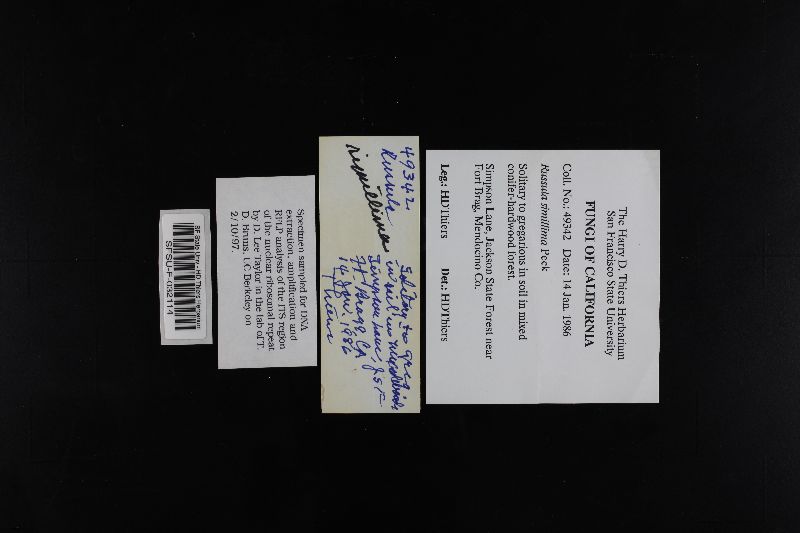 The Harry D. Thiers Herbarium
San Francisco State University
FUNGI OF CALIFORNIA
Coll. No.: 49342 Date: 14 Jan. 1986
Russula simillima Peck
Solitary to gregarious in soil in mixed
conifer-hardwood forest.
Simpson Lane, Jackson State Forest near
Fort Brag, Mendocino Co.
Leg.: HDThiers Det.: HDThiers
49342
Russula
simillima
Solitary to greg.
in soil in mixed woods
Simpson Lane, JSF
Ft. Bragg, CA
14 Jan. 1986
Thiers
Specimen sampled for DNA
extraction, amplification and
RFLP analysis of the ITS region
of the nuclear ribosomal repeat
by D. Lee Taylor in the lab of T.
D. Bruns, UC Berkeley on
2/10/97.
SF State Univ - HD Thiers Herbarium
SFSU-F-032114